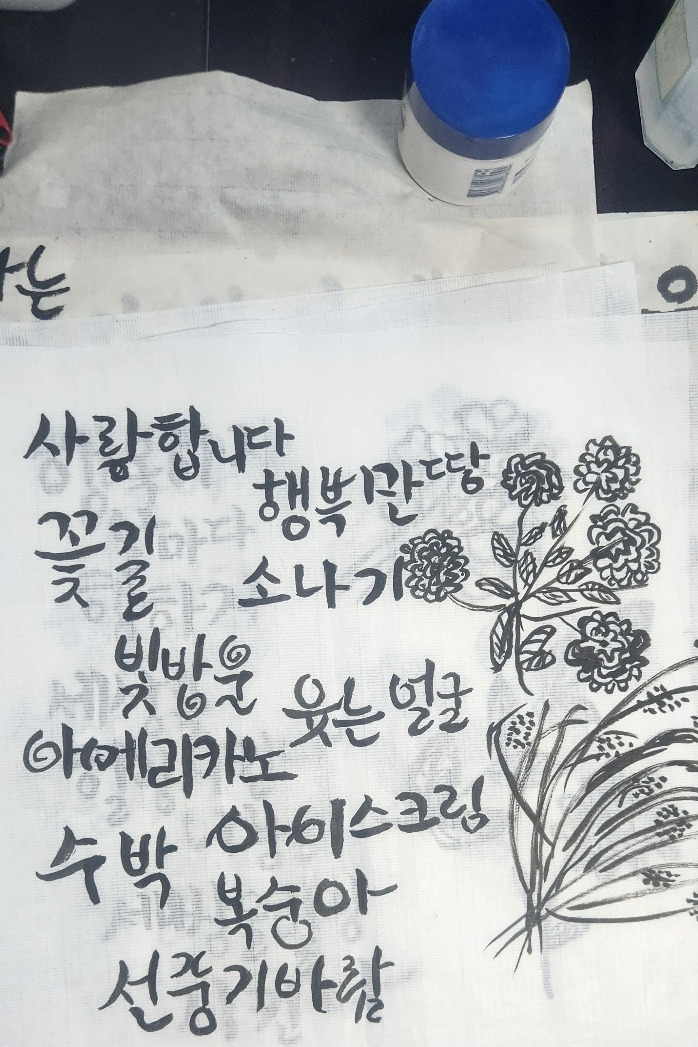 는
사랑합니다
행복만땅
꽃길
소나기
빗방울
웃는얼굴
아메리카노
아이스크림
수박
복숭아
선풍기바람